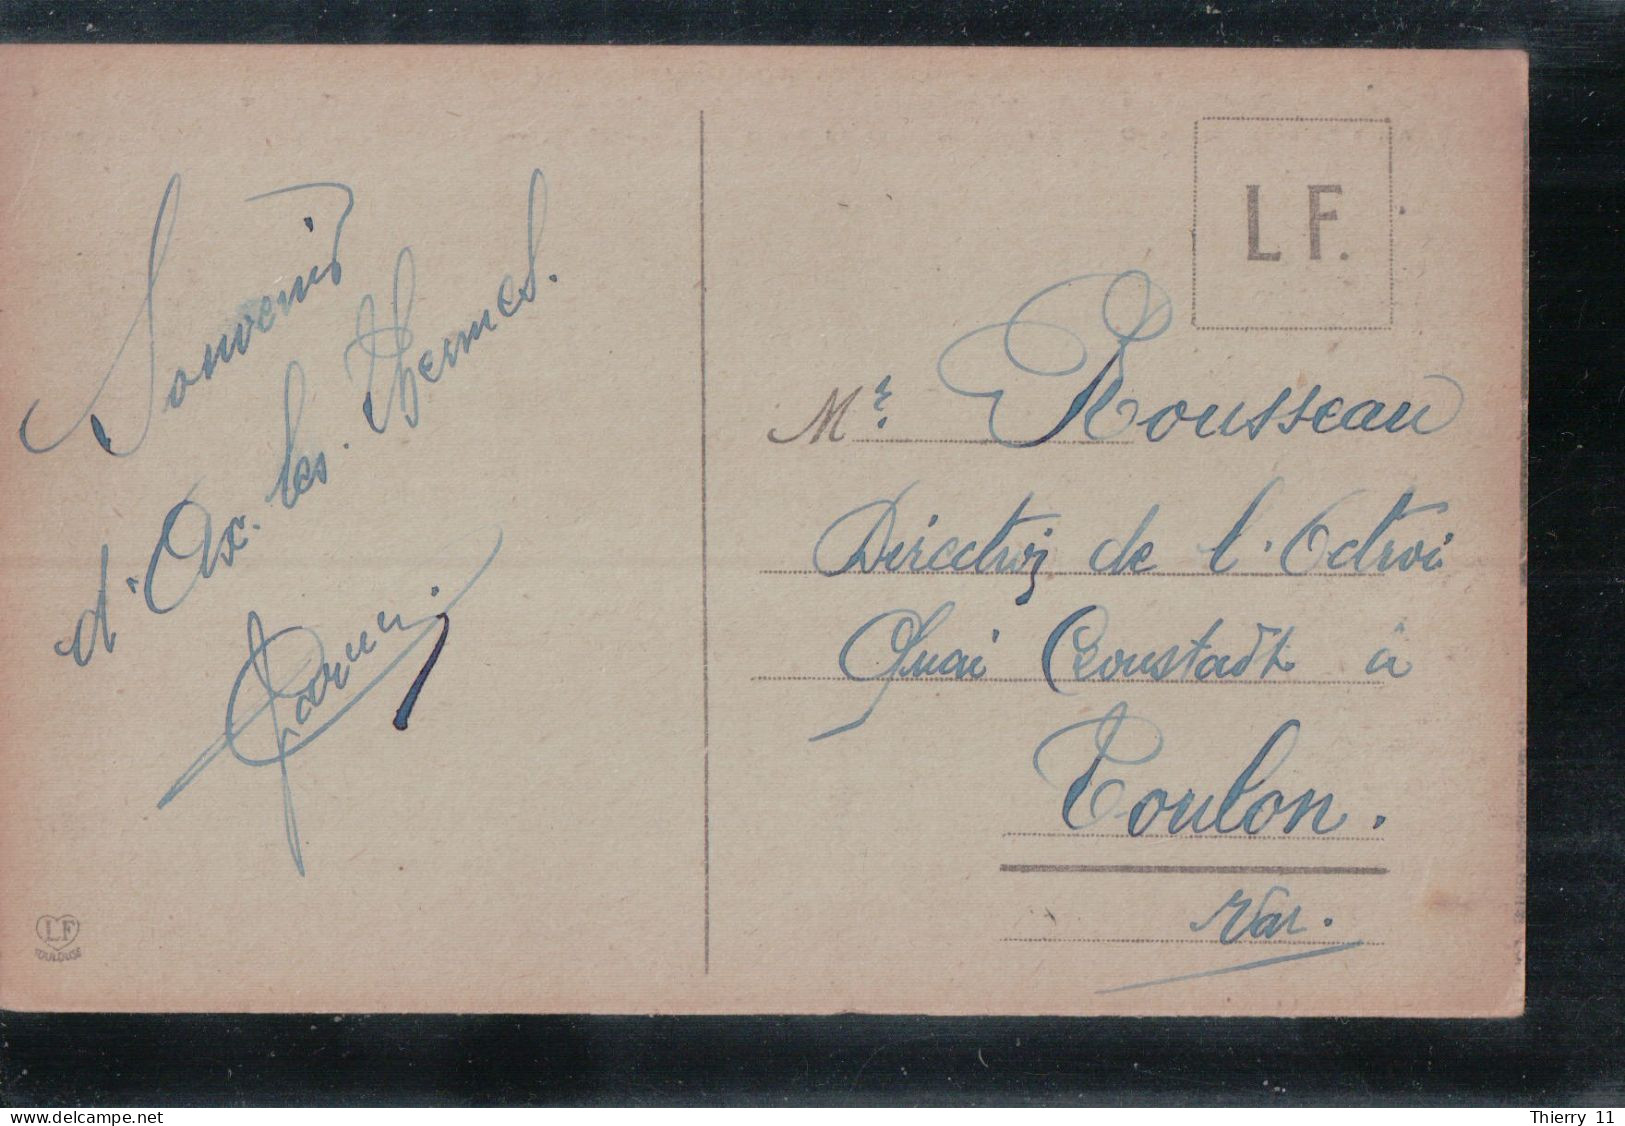 Souvenir
d'Ax. les. thermes.
L F.
Mr. Rousseau
Directeur de l'Octroi
Quai Cronstadt à
Toulon.
Var.
LF
TOULOUSE
www.delcampe.net
Thierry 11